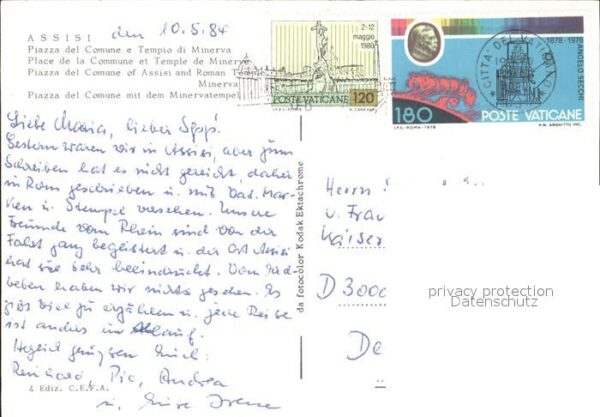 ASSISI den 10.5.84
Piazza del Comune e Tempio di Minerva
Place de la Commune et Temple de Minerve
Piazza del Comune of Assisi and Roman Temple
Minerva
Piazza del Comune mit dem Minervatempel
2-12
maggio
1980
POSTE VATICANE 120
I.P.S.-ROMA-1980
1878-1978
ANGELO SECCHI
CITTA' DEL VATICANO
180 POSTE VATICANE
I.P.S.-ROMA-1979
Liebe Maria, lieber Sepp!
Gestern waren wir in Assisi, aber zum
Schreiben hat es nicht gereicht, daher
in Rom geschrieben u. mit Vat. Mar-
ken u. Stempel versehen. Unsere
Freunde vom Rhein sind von der
Fahrt ganz begeistert u. der Ort Assisi
hat sie sehr beeindruckt. Vom Erd-
beben haben wir nichts gesehen. Es
gibt viel zu erzählen u. jede Reise
ist anders im Ablauf.
Herzlich grüßen Euch:
Reinhold, Pia, Andrea
u. Eure Irene
da fotocolor Kodak Ektachrome
Herrn
u. Frau
Kaiser
D 3000
De
privacy protection
Datenschutz
4 Ediz. C.E.F.A.